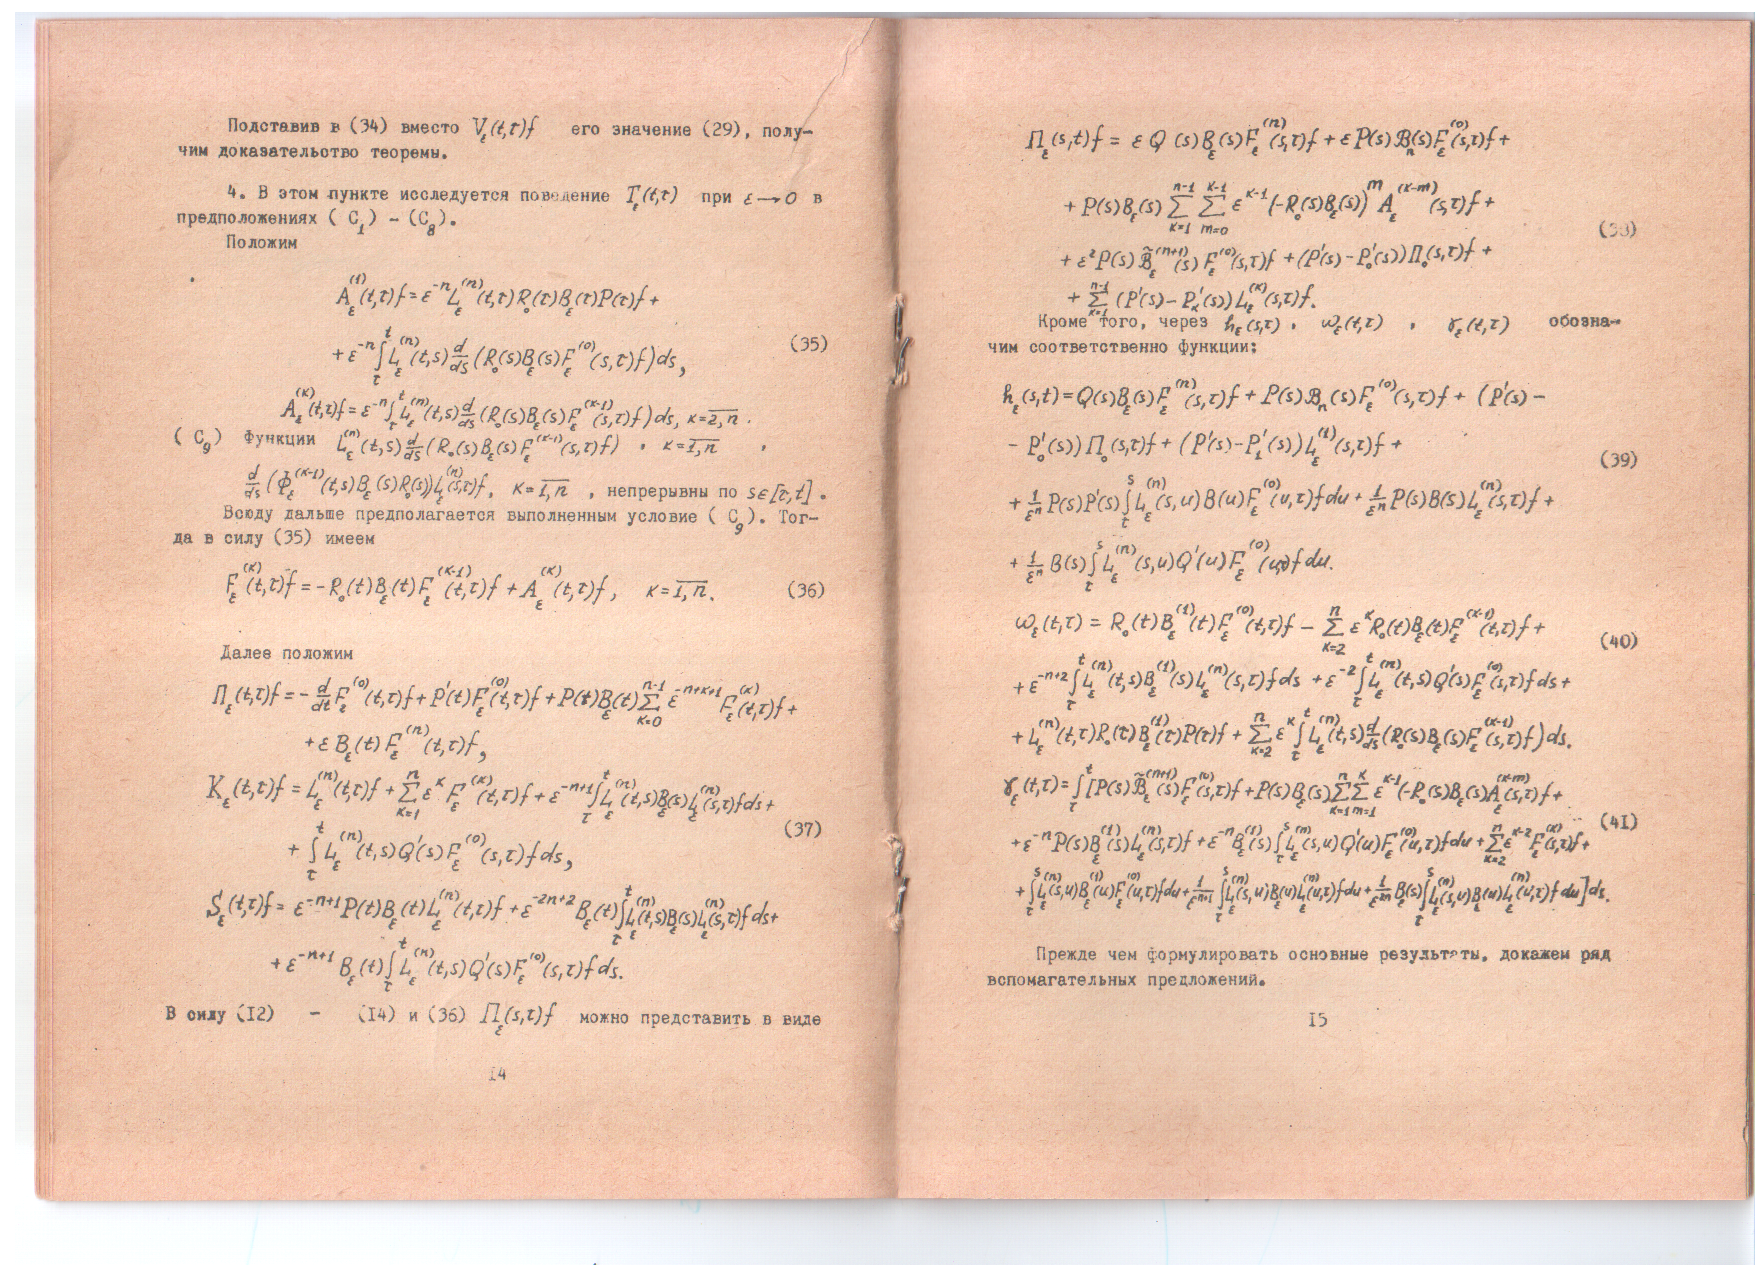 Подставив в (34) вместо V_ε(t,τ)f его значение (29), полу-
чим доказательство теоремы.
4. В этом пункте исследуется поведение T_ε(t,τ) при ε→0 в
предположениях ( C_1) - (C_8).
Положим
A_ε^(1)(t,τ)f = ε^{-n} L_ε^(n)(t,τ)R_0(τ)B_ε(τ)P(τ)f +
+ ε^{-n} ∫_τ^t L_ε^(n)(t,s) d/ds (R_0(s)B_ε(s)F_ε^(0)(s,τ)f)ds,
(35)
A_ε^(κ)(t,τ)f = ε^{-n} ∫_τ^t L_ε^(n)(t,s) d/ds (R_0(s)B_ε(s)F_ε^(κ-1)(s,τ)f)ds, κ=2,n̅.
( C_9) Функции L_ε^(n)(t,s) d/ds (R_0(s)B_ε(s)F_ε^(κ-1)(s,τ)f) , κ=1,n̅ ,
d/ds (Φ_ε^(κ-1)(t,s)B_ε(s)R_0(s))L_ε^(n)(s,τ)f, κ=1,n̅ , непрерывны по s∈[τ,t].
Всюду дальше предполагается выполненным условие ( C_9). Тог-
да в силу (35) имеем
F_ε^(κ)(t,τ)f = -R_0(t)B_ε(t)F_ε^(κ-1)(t,τ)f + A_ε^(κ)(t,τ)f, κ=1,n̅. (36)
Далее положим
Π_ε(t,τ)f = - d/dt F_ε^(0)(t,τ)f + P'(t)F_ε^(0)(t,τ)f + P(t)B_ε(t) Σ_{κ=0}^{n-1} ε^{-n+κ+1} F_ε^(κ)(t,τ)f +
+ ε B_ε(t) F_ε^(n)(t,τ)f,
K_ε(t,τ)f = L_ε^(n)(t,τ)f + Σ_{κ=1}^n ε^κ F_ε^(κ)(t,τ)f + ε^{-n+1} ∫_τ^t L_ε^(n)(t,s)B_ε(s)L_ε^(n)(s,τ)f ds +
(37)
+ ∫_τ^t L_ε^(n)(t,s)Q'(s)F_ε^(0)(s,τ)f ds,
S_ε(t,τ)f = ε^{-n+1} P(t)B_ε(t)L_ε^(n)(t,τ)f + ε^{-2n+2} B_ε(t) ∫_τ^t L_ε^(n)(t,s)B_ε(s)L_ε^(n)(s,τ)f ds +
+ ε^{-n+1} B_ε(t) ∫_τ^t L_ε^(n)(t,s)Q'(s)F_ε^(0)(s,τ)f ds.
В силу (I2) - (I4) и (36) Π_ε(s,τ)f можно представить в виде
I4
Π_ε(s,t)f = ε Q (s)B_ε(s)F_ε^(n)(s,τ)f + ε P(s)ℬ_n(s)F_ε^(0)(s,τ)f +
+ P(s)B_ε(s) Σ_{κ=1}^{n-1} Σ_{m=0}^{κ-1} ε^{κ-1} (-R_0(s)B_ε(s))^m A_ε^(κ-m)(s,τ)f +
(38)
+ ε² P(s) ℬ̃_ε^(n+1)(s) F_ε^(0)(s,τ)f + (P'(s) - P_0'(s)) Π_0(s,τ)f +
+ Σ_{κ=1}^{n-1} (P'(s) - P_κ'(s)) L_ε^(κ)(s,τ)f.
Кроме того, через h_ε(s,τ) , ω_ε(t,τ) , γ_ε(t,τ) обозна-
чим соответственно функции:
h_ε(s,t) = Q(s)B_ε(s)F_ε^(n)(s,τ)f + P(s)ℬ_n(s)F_ε^(0)(s,τ)f + (P'(s) -
- P_0'(s)) Π_0(s,τ)f + (P'(s) - P_1'(s)) L_ε^(1)(s,τ)f +
(39)
+ 1/ε^n P(s)P'(s) ∫_τ^s L_ε^(n)(s,u)B(u)F_ε^(0)(u,τ)f du + 1/ε^n P(s)B(s)L_ε^(n)(s,τ)f +
+ 1/ε^n B(s) ∫_τ^s L_ε^(n)(s,u)Q'(u)F_ε^(0)(u,τ)f du.
ω_ε(t,τ) = R_0(t)B_ε^(1)(t)F_ε^(0)(t,τ)f - Σ_{κ=2}^n ε^κ R_0(t)B_ε(t)F_ε^(κ-1)(t,τ)f +
(40)
+ ε^{-n+2} ∫_τ^t L_ε^(n)(t,s)B_ε^(1)(s)L_ε^(n)(s,τ)f ds + ε^{-2} ∫_τ^t L_ε^(n)(t,s)Q'(s)F_ε^(0)(s,τ)f ds +
+ L_ε^(n)(t,τ)R_0(τ)B_ε^(1)(τ)P(τ)f + Σ_{κ=2}^n ε^κ ∫_τ^t L_ε^(n)(t,s) d/ds (R_0(s)B_ε(s)F_ε^(κ-1)(s,τ)f)ds.
γ_ε(t,τ) = ∫_τ^t [P(s)ℬ̃_ε^(n+1)(s)F_ε^(0)(s,τ)f + P(s)B_ε(s) Σ_{κ=1}^n Σ_{m=1}^κ ε^{κ-1} (-R_0(s)B_ε(s)A_ε^(κ-m)(s,τ)f +
(4I)
+ ε^{-n} P(s)B_ε^(1)(s)L_ε^(n)(s,τ)f + ε^{-n} B_ε^(1)(s) ∫_τ^s L_ε^(n)(s,u)Q'(u)F_ε^(0)(u,τ)f du + Σ_{κ=2}^n ε^{κ-2} F_ε^(κ)(s,τ)f +
+ ∫_τ^s L_ε^(n)(s,u)B_ε^(1)(u)F_ε^(0)(u,τ)f du + 1/ε^{n+1} ∫_τ^s L_ε^(n)(s,u)B_ε(u)L_ε^(n)(u,τ)f du + 1/ε^{2n} B_ε(s) ∫_τ^s L_ε^(n)(s,u)B_ε(u)L_ε^(n)(u,τ)f du] ds.
Прежде чем формулировать основные результаты, докажем ряд
вспомагательных предложений.
I5